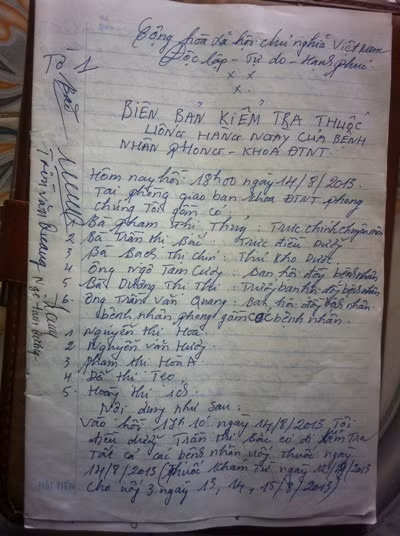 Cộng hòa xã hội chủ nghĩa Việt Nam
Độc lập - Tự do - Hạnh phúc
x x
x
Tờ 1
BIÊN BẢN KIỂM TRA THUỐC
UỐNG HÀNG NGÀY CỦA BỆNH
NHÂN PHONG - KHOA ĐTNT.
Hôm nay hồi 18h00 ngày 14/8/2013.
Tại phòng giao ban khoa ĐTNT phong
chúng Tôi gồm có
1 Bà Phạm Thị Thúy: Trực chính chuyên môn
2 Bà Trần thị Bắc: Trực điều Dưỡng
3 Bà thị chín: Thủ kho Dược
4 Ông Ngô Tam Cường: Ban hội đồng bệnh nhân
5 Bà Dương Thị Thu: Trưởng ban hội đồng bệnh nhân
6. Ông Trần Văn Quang: Ban hội đồng bệnh nhân.
bệnh nhân phong gồm các bệnh nhân.
1 Nguyễn thị Hoa
2 Nguyễn văn
3 phạm thị Hòn A
4 Đỗ thị Tẹo
5 - Hoàng thị
Nội dung như Sau:
Vào hồi 17h 10' ngày 14/8/2013 Tôi
điều dưỡng Trần thị Bắc có đi kiểm tra
Tất cả các bệnh nhân uống thuốc ngày
14/8/2013 (thuốc khám từ ngày 12/8/2013
cho uống 3 ngày 13, 14, 15/8/2013)
Bắc
Trần văn Quang
Ngô Tam Cường
HẢI TIẾN